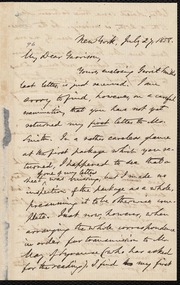 New York, July 27, 1858.
My Dear Garrison,
Yours, enclosing Gerrit Smith's
last letter, is just received. I am
sorry to find, however, on a careful
examination, that you have not yet
returned my first letter to Mr.
Smith. In a rather careless glance
at the first package which you re-
turned, I happened to see that a
sheet of my letter
was missing, but I made no
inspection of the package as a whole,
presuming it to be otherwise com-
plete. Just now, however, when
arranging the whole correspondence
in order for transmission to Mr.
May, of Syracuse (who has asked
for the reading), I find my first